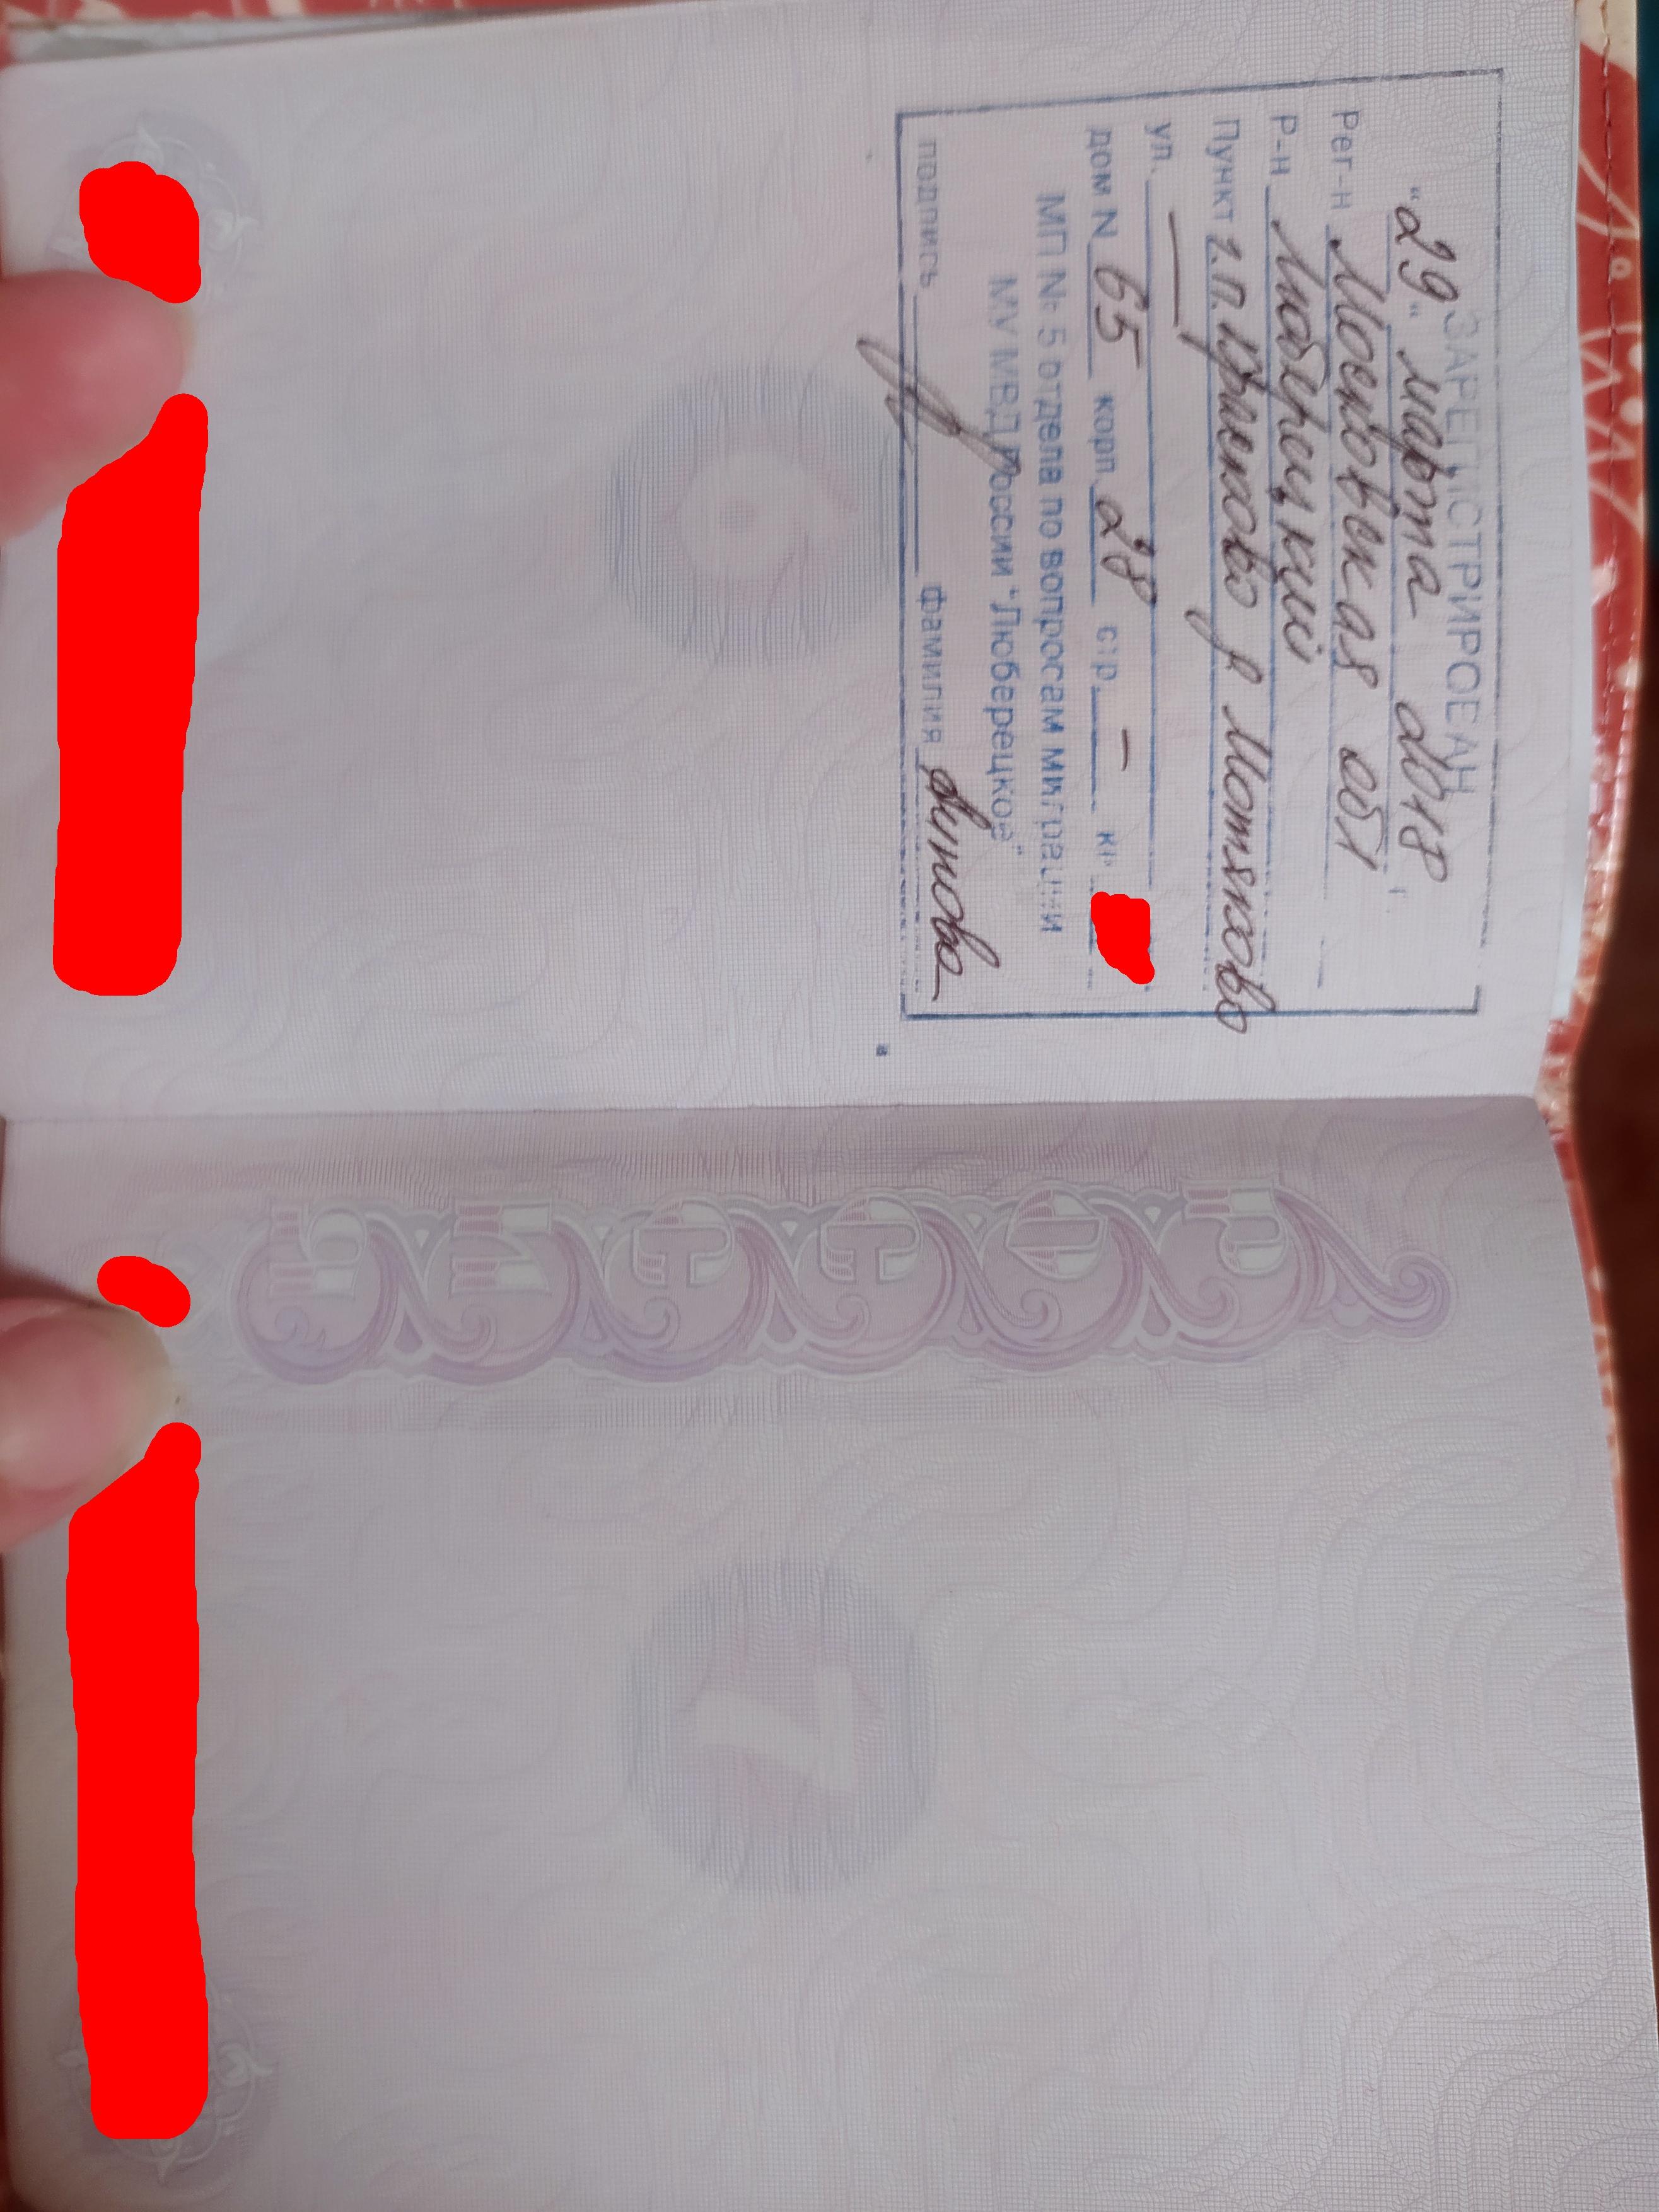 ЗАРЕГИСТРИРОВАН
"29" марта 2018 г.
Рег-н Московская обл
Р-н Люберецкий
Пункт г.п. Красково д Мотяково
ул. —
дом N 65 корп. 28 стр. — кв.
МП № 5 отдела по вопросам миграции
МУ МВД России "Люберецкое"
подпись фамилия
РОССИЯ
6
7